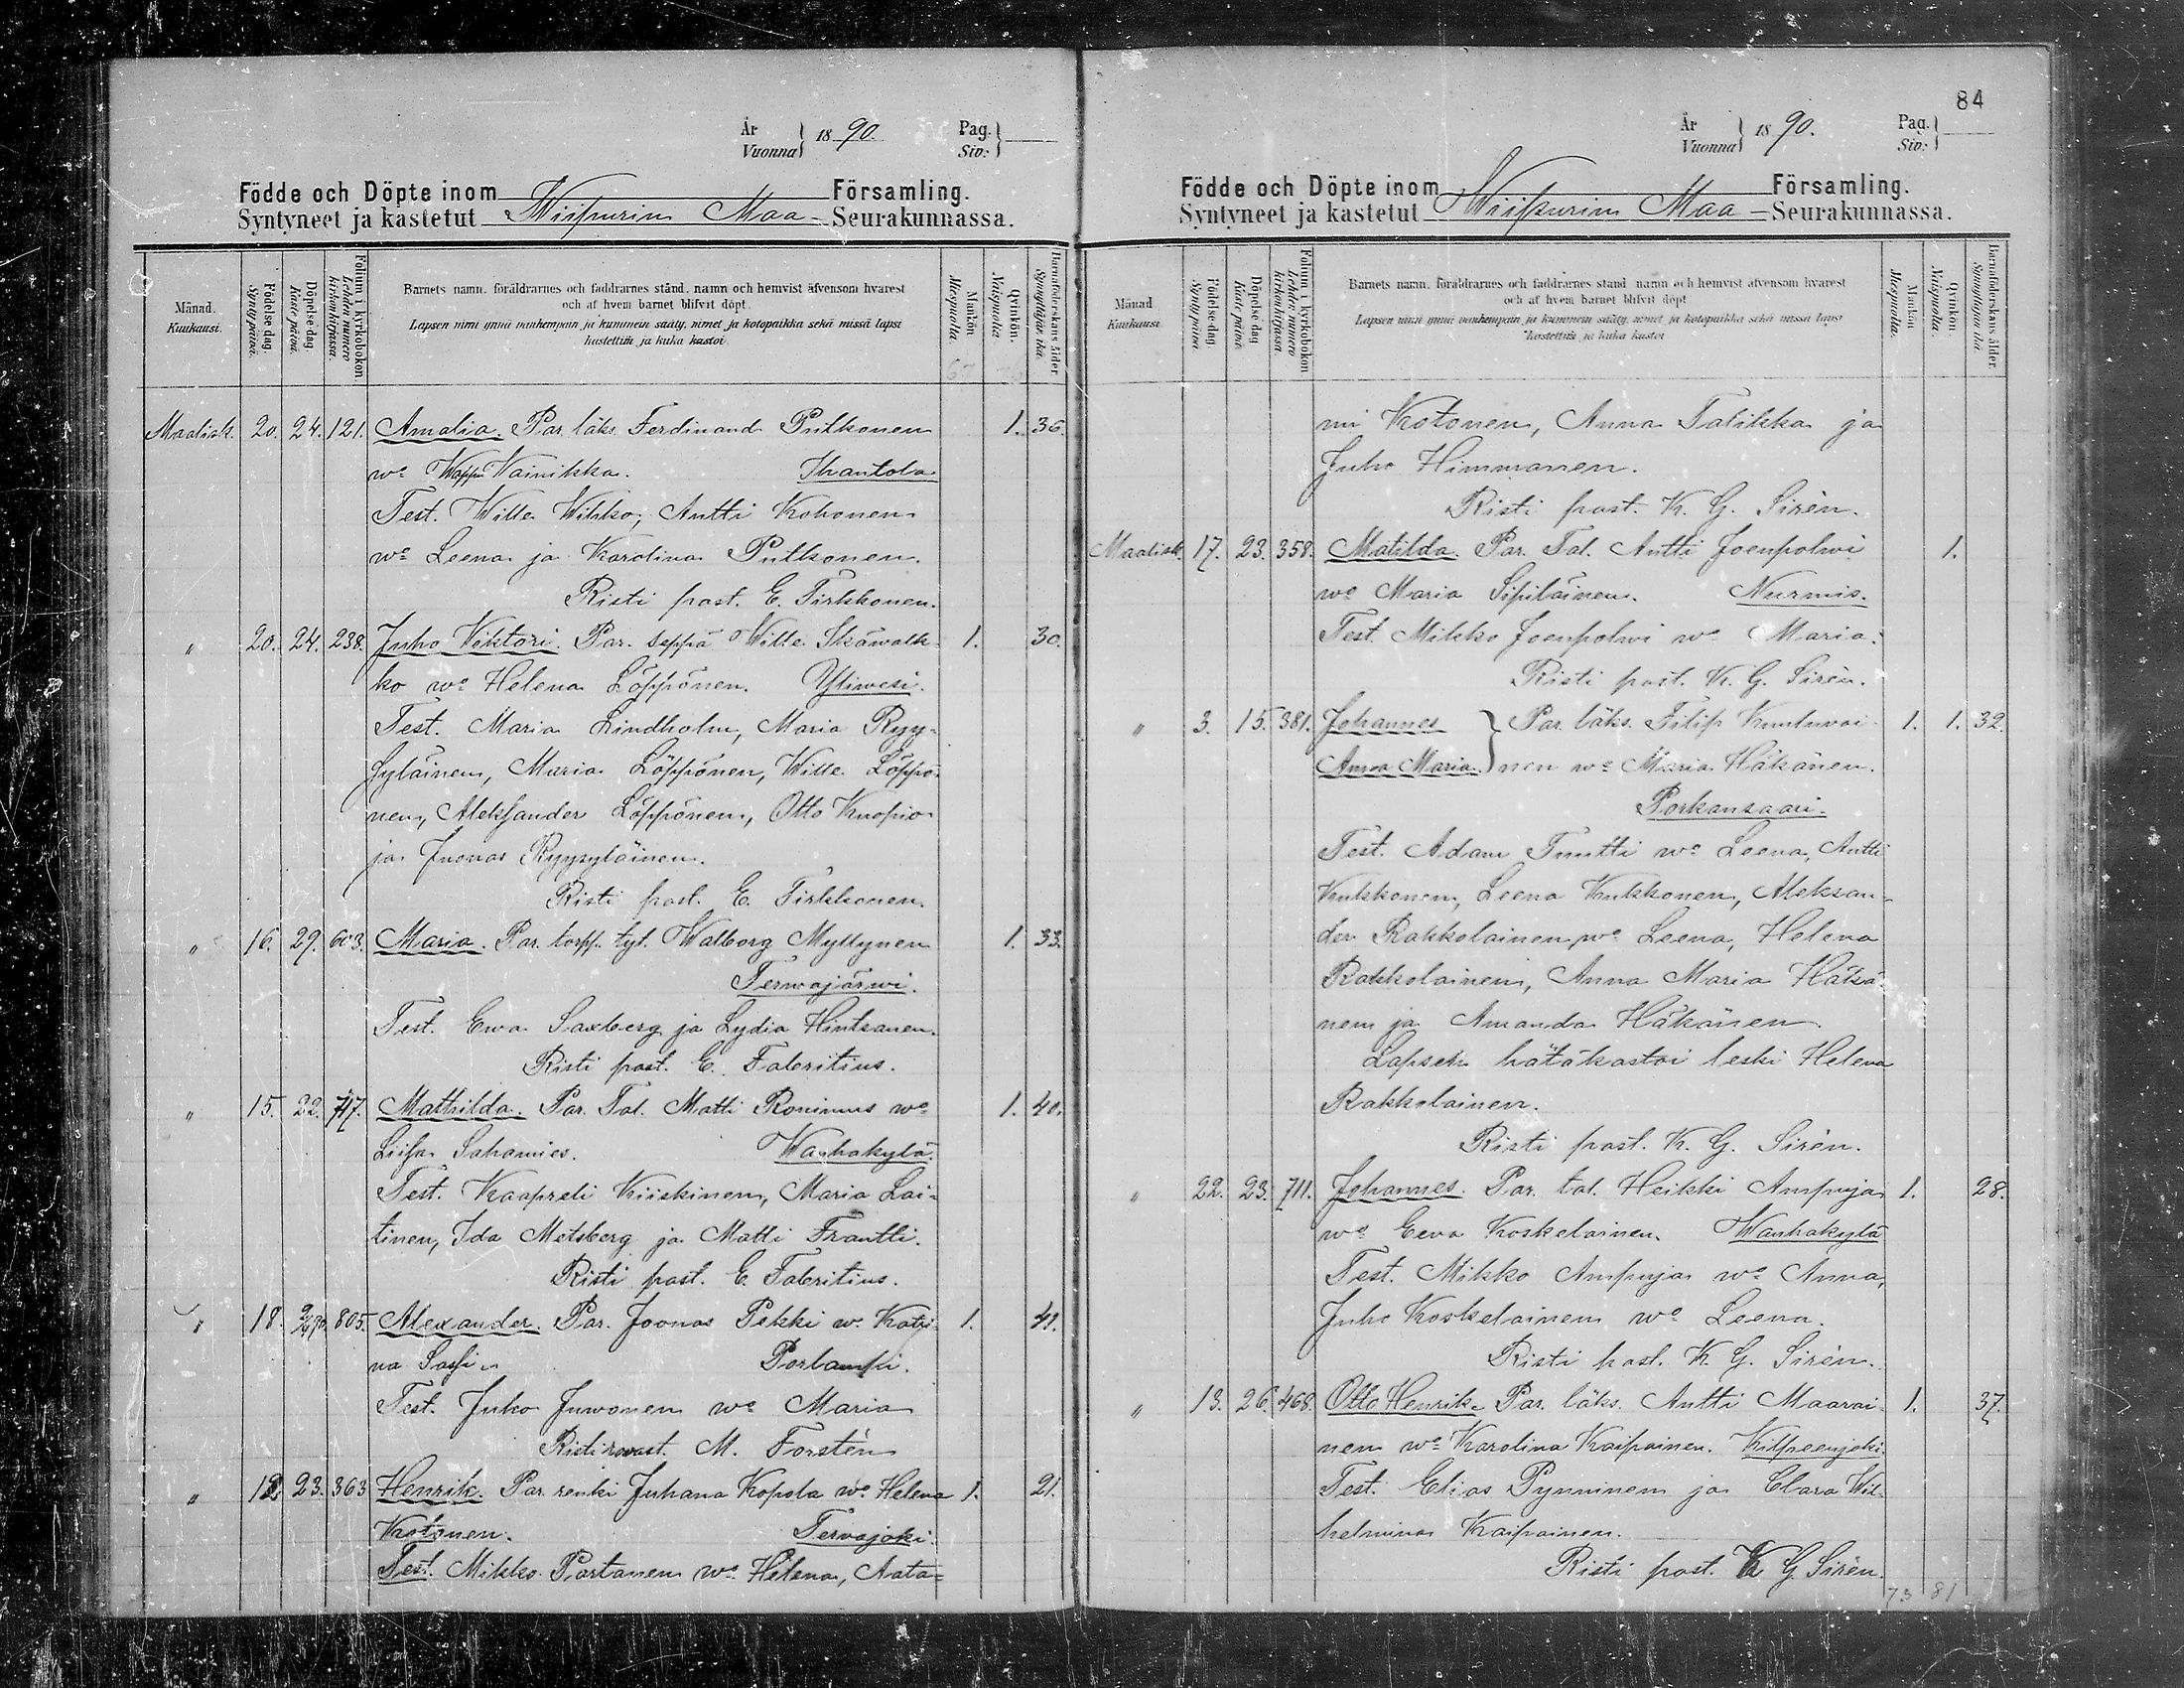 År
Vuonna } 1890. Pag.
Siv: }
Födde och Döpte inom Församling.
Syntyneet ja kastetut Wiipurin Maa- Seurakunnassa.
Månad.
Kuukausi.
Födelse dag.
Syntypäivä.
Döpelse dag.
Kaste päivä.
Folium i kyrkoboken
Lehden numero
kirkonkirjassa.
Barnets namn, föräldrarnes och faddrarnes stånd, namn och hemvist äfvensom hvarest
och af hvem barnet blifvit döpt.
Lapsen nimi ynnä vanhempain ja kummein sääty, nimet ja kotopaikka sekä missä lapsi
kastettiin ja kuka kastoi.
Mankön
Miespuolia.
Qvinkön.
Naispuolia.
Barnaföderskans ålder
Synnyttäjän ikä.
Maalisk. 20. 24. 121. Amalia. Par. läks. Ferdinand Putkonen 1. 36.
wo Wappu Vainikka. Ihantola
Test. Wille Wihko, Antti Kohonen
wo Leena ja Karolina Putkonen.
Risti past. E. Tirkkonen.
" 20. 24. 238. Juho Viktori. Par. seppä Wille Skäwalk- 1. 30.
ko wo Helena Löppönen. Ylivesi.
Test. Maria Lindholm, Maria Ryy-
syläinen, Maria Löppönen, Wille Löppö-
nen, Aleksander Löppönen, Otto Kuopio
ja Juonas Ryysyläinen.
Risti past. E. Tirkkonen.
" 16. 29. 603. Maria. Par. torpp. tyt. Walborg Myllynen 1. 33.
Terwajärwi.
Test. Ewa Saxberg ja Lydia Hintsanen.
Risti past. E. Faleritius.
" 15. 22. 717. Mathilda. Par. Tal. Matti Ronimus wo 1. 40.
Liisa Sahamies. Wanhakylä.
Test. Kaapreli Kiiskinen, Maria Lai-
tinen, Ida Metsberg ja Matti Frantti.
Risti past. E. Faleritius.
" 18. 805. Alexander. Par. Joonas Pekki wo Katri- 1. 41.
na Sassi. Porlampi.
Test. Juho Juvonen wo Maria
Risti rovast. M. Forstén
" 23. 363 Henrik. Par. renki Juhana Kopola wo Helena 1. 21.
Kotonen. Tervajoki.
Test. Mikko Partanen wo Helena, Aata-
84
År
Vuonna } 1890. Pag.
Siv: }
Födde och Döpte inom Församling.
Syntyneet ja kastetut Wiipurin Maa- Seurakunnassa.
Månad
Kuukausi
Födelse-dag.
Synty päivä
Döpelse dag
Kaste päivä
Folium i kyrkoboken
Lehden numero
kirkonkirjassa
Barnets namn, föräldrarnes och faddrarnes stånd namn och hemvist äfvensom hvarest
och af hvem barnet blifvit döpt
Lapsen nimi ynnä vanhempain ja kummein sääty, nimet ja kotopaikka sekä missä lapsi
kastettiin ja kuka kastoi
Mankön
Miespuolia.
Qvinkön.
Naispuolia.
Barnaföderskans ålder.
Synnyttäjän ikä.
mi Kotonen, Anna Talikka ja
Juho Himmanen.
Risti past. K. G. Sirén.
Maalisk. 17. 23. 358. Matilda. Par. Tal. Antti Joenpolwi 1.
wo Maria Sipiläinen. Nurmis.
Test. Mikko Joenpolwi wo Maria.
Risti past. K. G. Sirén.
" 3. 15. 381. Johannes } Par. läks. Filip Kuuluwai- 1. 1. 32.
Anna Maria. } nen wo Maria Häkänen.
Porkansaari.
Test. Adam Tuutti wo Leena, Antti
Kukkonen, Leena Kukkonen, Aleksan-
der Rakkolainen wo Leena, Helena
Rakkolainen, Anna Maria Häkä-
nen ja Amanda Häkänen
Lapset hätäkastoi leski Helena
Rakkolainen.
Risti past. K. G. Sirén.
" 22. 23. 711. Johannes. Par. tal. Heikki Ampuja 1. 28.
wo Eeva Koskelainen. Wanhakylä
Test. Mikko Ampuja wo Anna,
Juho Koskelainen wo Leena.
Risti past. K. G. Sirén.
" 13. 26. 468. Otto Henrik. Par. läks. Antti Maarai- 1. 37.
nen wo Karolina Kaipainen. Kilpeenjoki.
Test. Elias Pynninen ja Clara Wil-
helmina Kaipainen.
Risti past. K G. Sirén.
73 81